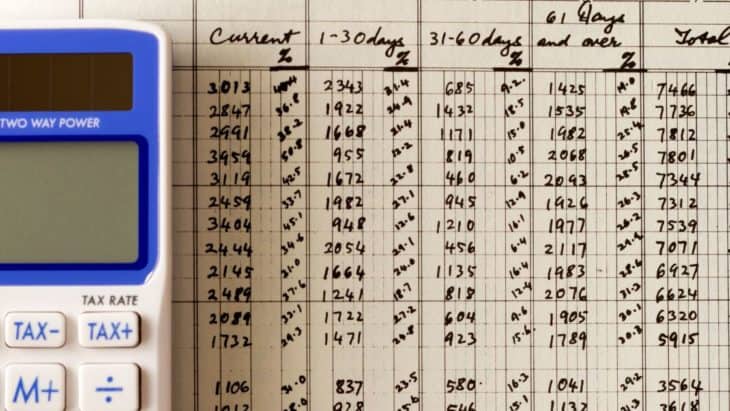 TWO WAY POWER
TAX RATE
TAX-
TAX+
M+
÷
61 Days
Current 1-30days 31-60days and over Total
% % % %
3013 40.4 2343 31.4 685 9.2 1425 19.0 7466
2847 36.8 1922 24.9 1432 18.5 1535 19.8 7736
2991 38.2 1668 21.4 1171 15.0 1982 25.4 7812
3959 50.8 955 12.2 819 10.5 2068 26.5 7801
3119 42.5 1672 22.8 460 6.2 2093 28.5 7344
2459 33.7 1982 27.1 945 12.9 1926 26.3 7312
3404 45.1 948 12.6 1210 16.1 1977 26.2 7539
2444 34.6 2054 29.1 456 6.4 2117 29.9 7071
2145 31.0 1664 24.0 1135 16.4 1983 28.6 6927
2489 37.6 1241 18.7 818 12.4 2076 31.3 6624
2089 33.1 1722 27.2 604 9.6 1905 30.1 6320
1732 29.3 1471 24.8 923 15.6 1789 30.3 5915
1106 31.0 837 23.5 580 16.3 1041 29.2 3564
1012 28.0 928 25.6 546 15.1 1132 31.3 3618